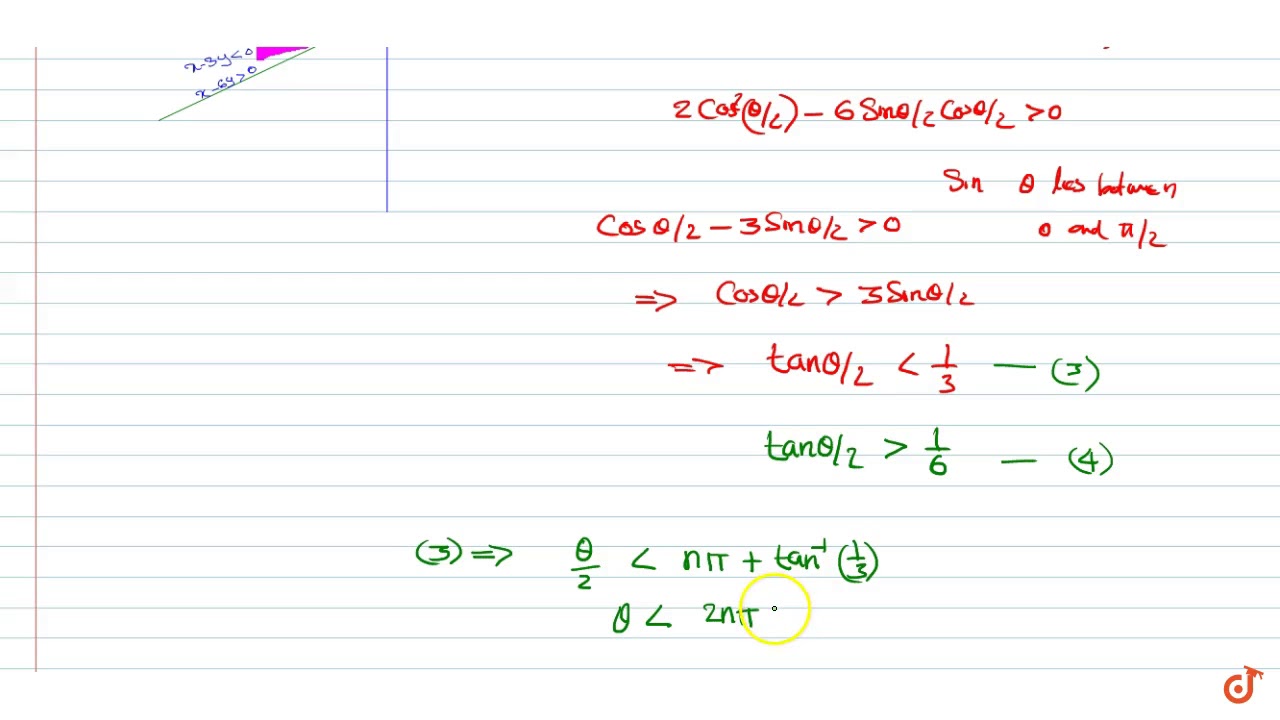 x-3y<0
x-6y>0
2 Cos²(θ/2) - 6 Sinθ/2 Cosθ/2 > 0
Sin θ lies between
Cos θ/2 - 3 Sin θ/2 > 0
0 and π/2
=> Cosθ/2 > 3 Sinθ/2
=> tanθ/2 < 1/3 — (3)
tanθ/2 > 1/6 — (4)
(3) => θ/2 < nπ + tan⁻¹(1/3)
θ < 2nπ